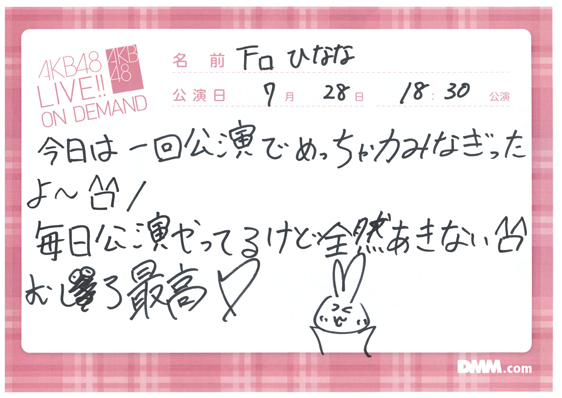 AKB48
LIVE!!
ON DEMAND
AKB
48
名前 下口ひなな
公演日 7月 28日 18:30 公演
今日は一回公演でめっちゃ力みなぎった
よ〜 凸/
毎日公演やってるけど全然あきない凸
むしろ最高♡
DMM.com